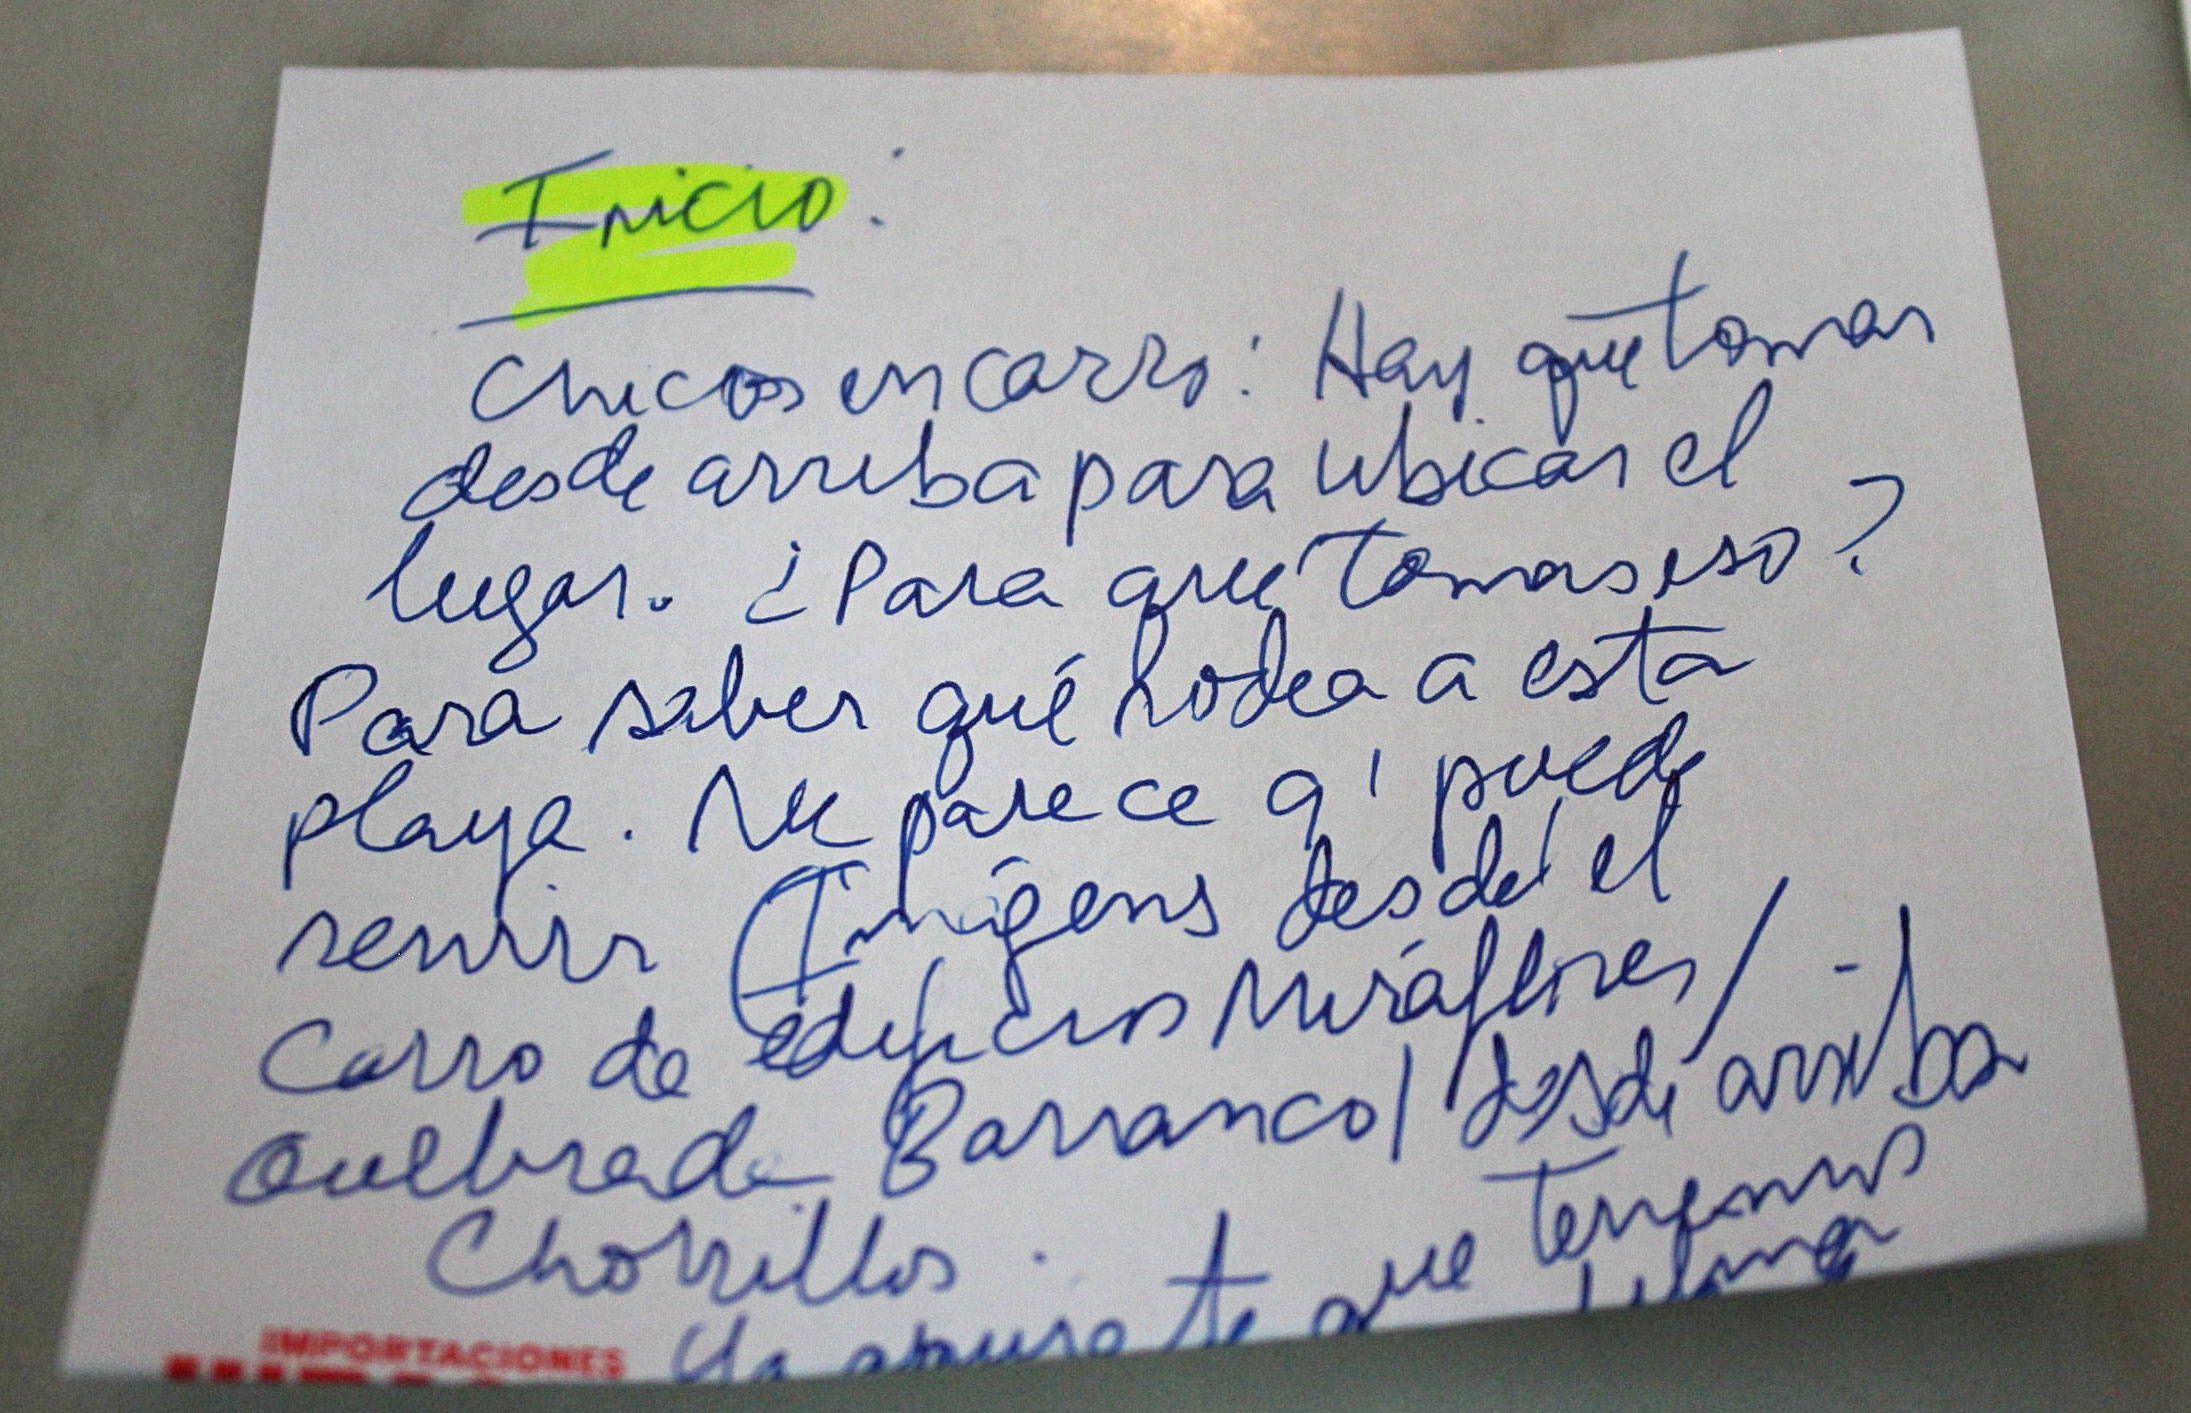 Inicio:
Chicos en carro: Hay que tomar
desde arriba para ubicar el
lugar. ¿Para que tomas eso?
Para saber qué rodea a esta
playa. Me parece q' puede
servir (Imágens desde el
Carro de edificios Miraflores/
Quebrada Barranco/ desde arriba
Chorrillos.
Ya apurate que tenemos
IMPORTACIONES